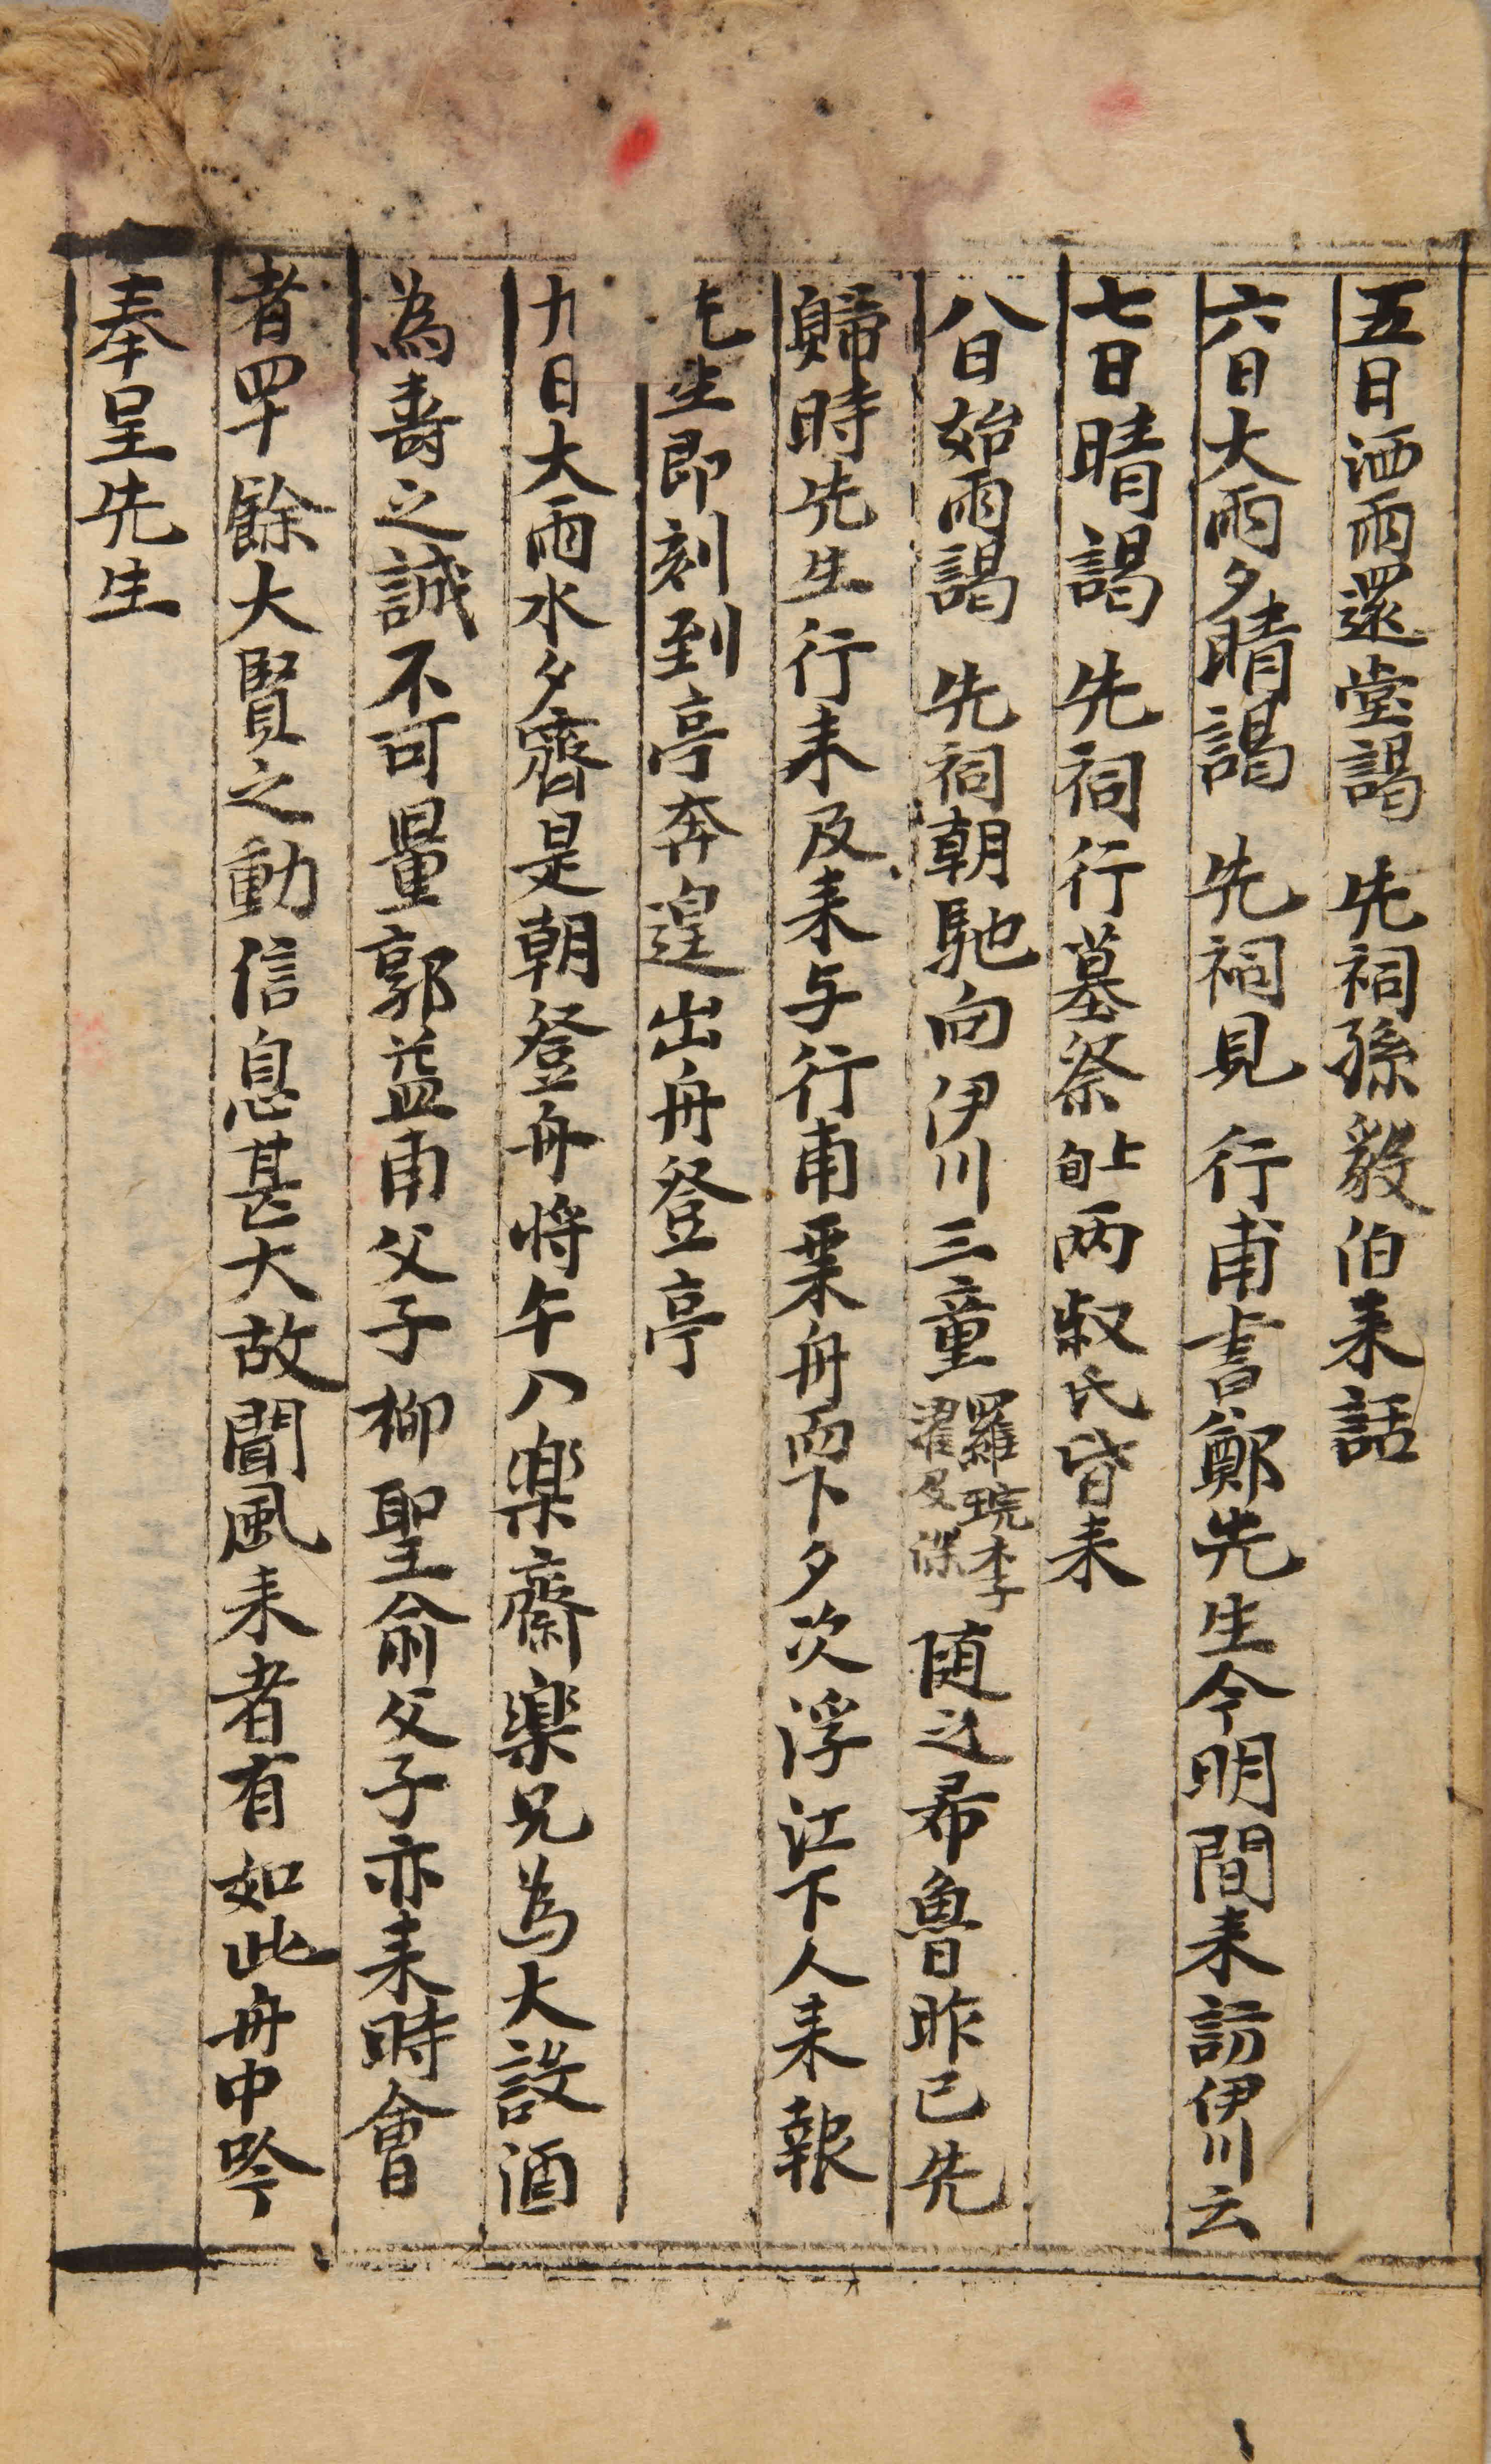 五日洒雨還堂謁 先祠孫毅伯来話
六日大雨夕晴謁 先祠見 行甫書鄭先生今明間来訪伊川云
七日晴謁 先祠行墓祭上旬兩叔氏皆来
八日始雨謁 先祠朝馳向伊川三童羅琓李濯及 随之希魯昨已先
歸時先生行来及来与行甫乗舟而下夕次浮江下人来報
先生即刻到亭奔遑出舟登亭
九日大雨水夕霽是朝登舟将午入樂齋樂兄為大設酒
為壽之誠不可量郭益甫父子柳聖俞父子亦来時會
者四十餘大賢之動信息甚大故聞風来者有如此舟中吟
奉呈先生